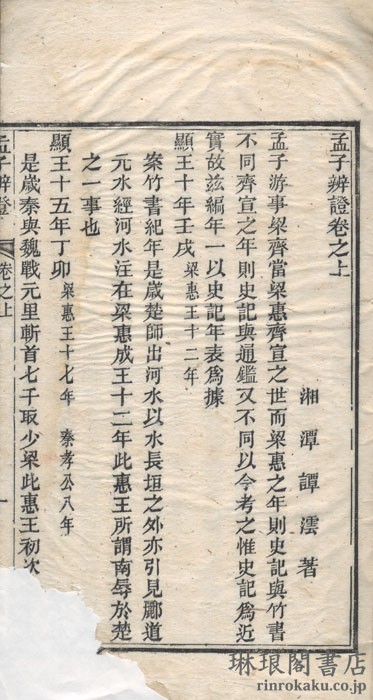 孟子辨證卷之上
湘潭譚澐著
孟子游事梁齊當梁惠齊宣之世而梁惠之年則史記與竹書
不同齊宣之年則史記與通鑑又不同以今考之惟史記爲近
實故茲編年一以史記年表爲據
顯王十年壬戌 梁惠王十二年
案竹書紀年是歲楚師出河水以水長垣之外亦引見酈道
元水經河水注在梁惠成王十二年此惠王所謂南辱於楚
之一事也
顯王十五年丁卯 梁惠王十七年 秦孝公八年
是歲秦與魏戰元里斬首七千取少梁此惠王初次
孟子辨證 卷之上 一
琳琅閣書店
rinrokaku.co.jp